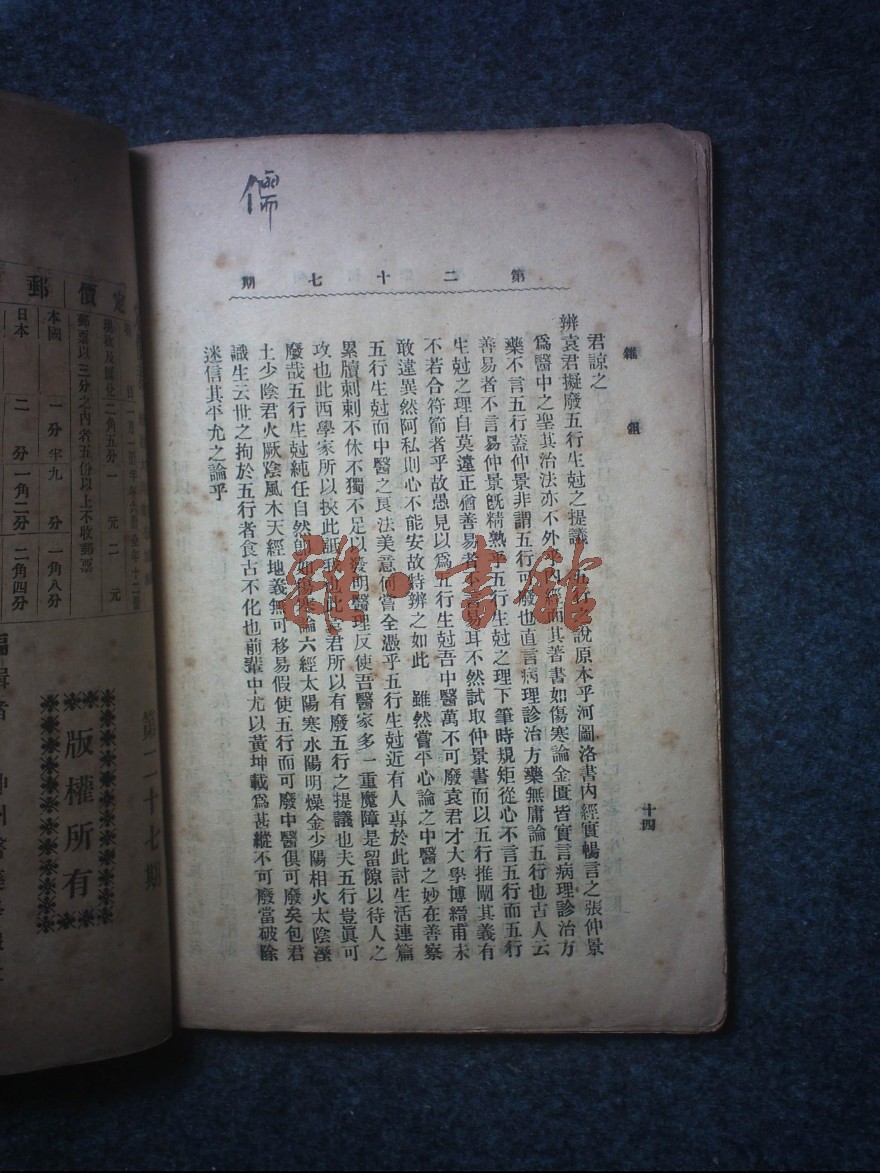 儒
第二十七期
雜俎
十四
君諒之
辨袁君擬廢五行生尅之提議 五行之說原本乎河圖洛書內經實暢言之張仲景
爲醫中之聖其治法亦不外乎內經而其著書如傷寒論金匱皆實言病理診治方
藥不言五行蓋仲景非謂五行可發也直言病理診治方藥無庸論五行也古人云
善易者不言易仲景旣精熟乎五行生尅之理下筆時規矩從心不言五行而五行
生尅之理自莫違正猶善易者不言易耳不然試取仲景書而以五行推闡其義有
不若合符節者乎故愚見以爲五行生尅吾中醫萬不可廢袁君才大學博縉甫未
敢違異然阿私則心不能安故特辨之如此 雖然嘗平心論之中醫之妙在善察
五行生尅而中醫之良法美意何嘗全憑乎五行生尅近有人專於此討生活連篇
累牘刺刺不休不獨不足以發明醫理反使吾醫家多一重魔障是留隙以待人之
攻也此西學家所以挾此
袁君所以有廢五行之提議也夫五行豈眞可
廢哉五行生尅純任自然
論六經太陽寒水陽明燥金少陽相火太陰溼
土少陰君火厥陰風木天經地義無可移易假使五行而可廢中醫俱可廢矣包君
識生云世之拘於五行者食古不化也前輩中尤以黃坤載爲甚縱不可廢當破除
迷信其平允之論乎
雜·書館
定價 郵
郵票以三分之內者五份以上不收郵票
本國 一分半 九分 一角八分
日本 二分 一角二分 二角四分
第二十七期
版權所有